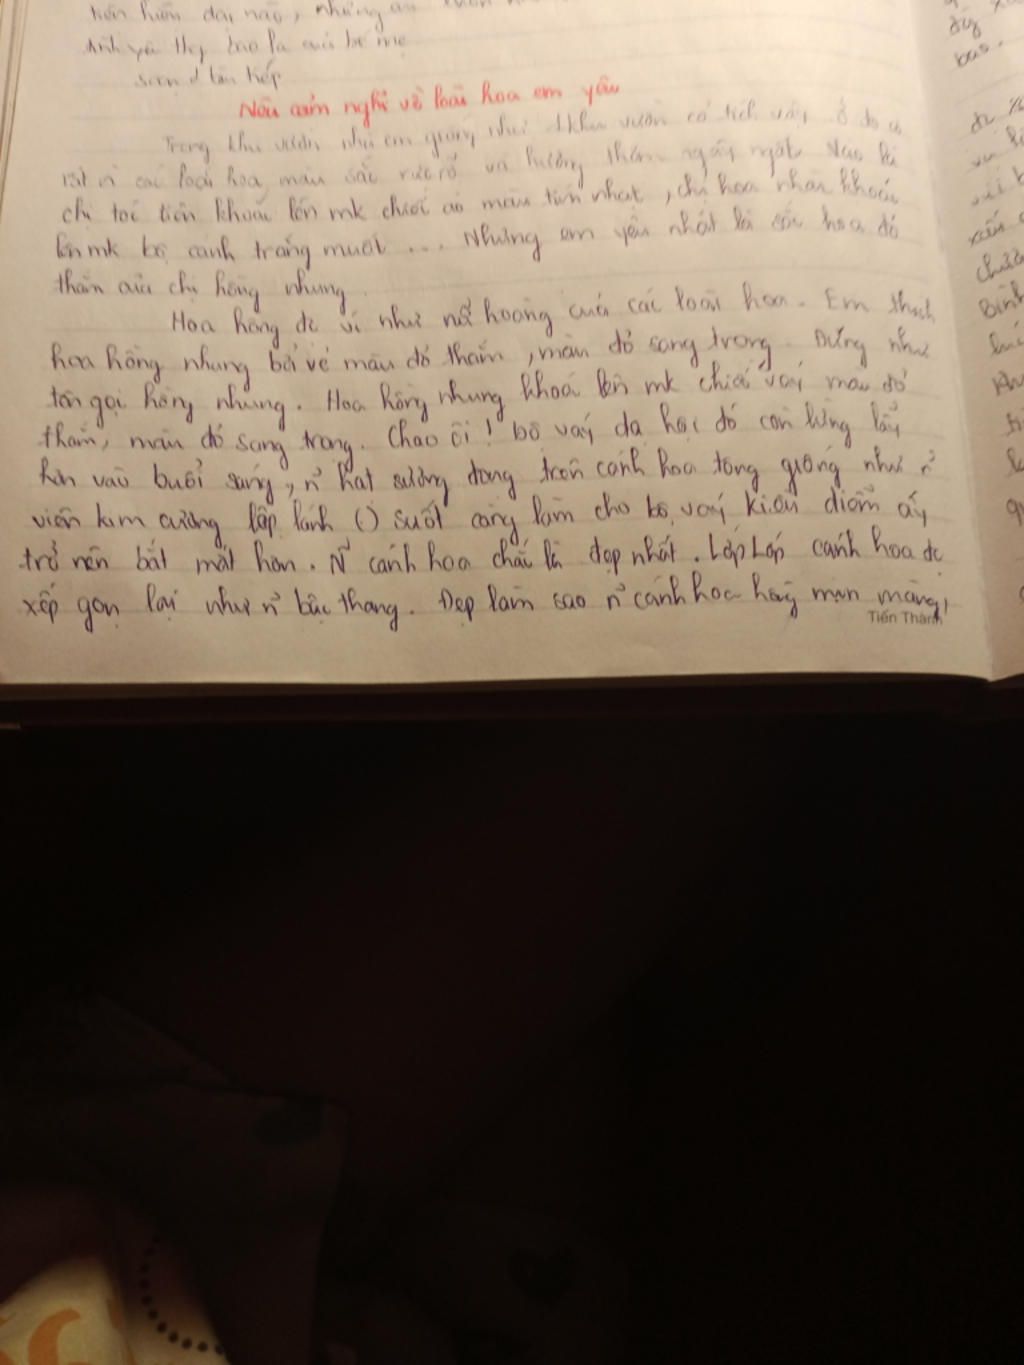 tiên hiện đại nào, những ân
tình yêu thg bao la của bố mẹ
soạn d lần tiếp
Nêu cảm nghĩ về loài hoa em yêu
Trong khu vườn nhà em giống như 1 khu vườn cổ tích vậy. Ở đó có
rất n̉ các loài hoa, màu sắc rực rỡ và hương thơm ngây ngất. Nào là
chị toć tiên khoác lên mk chiếc áo màu tím nhạt, chị hoa nhài khoác
lên mk bộ cánh trắng muốt ... Nhưng em yêu nhất là sắc hoa đỏ
thắm của chị hồng nhung.
Hoa hồng đc ví như nữ hoàng của các loài hoa. Em thích
hoa hồng nhung bởi vẻ màu đỏ thắm, màu đỏ sang trọng. Đúng như
tên gọi hồng nhung. Hoa hồng nhung khoác lên mk chiếc váy màu đỏ
thắm, màu đỏ sang trọng. Chao ôi! bộ váy dạ hội đó còn lộng lẫy
hơn vào buổi sáng, n̉ hạt sương đọng trên cánh hoa tông giống như n̉
viên kim cương lấp lánh () suốt càng làm cho bộ váy kiều diễm ấy
trở nên bắt mắt hơn. N̉ cánh hoa chắc là đẹp nhất. Lớp Lớp cánh hoa đc
xếp gọn lại như n̉ bậc thang. Đẹp làm sao n̉ cánh hoa hồng mịn màng,
Tiến Thành